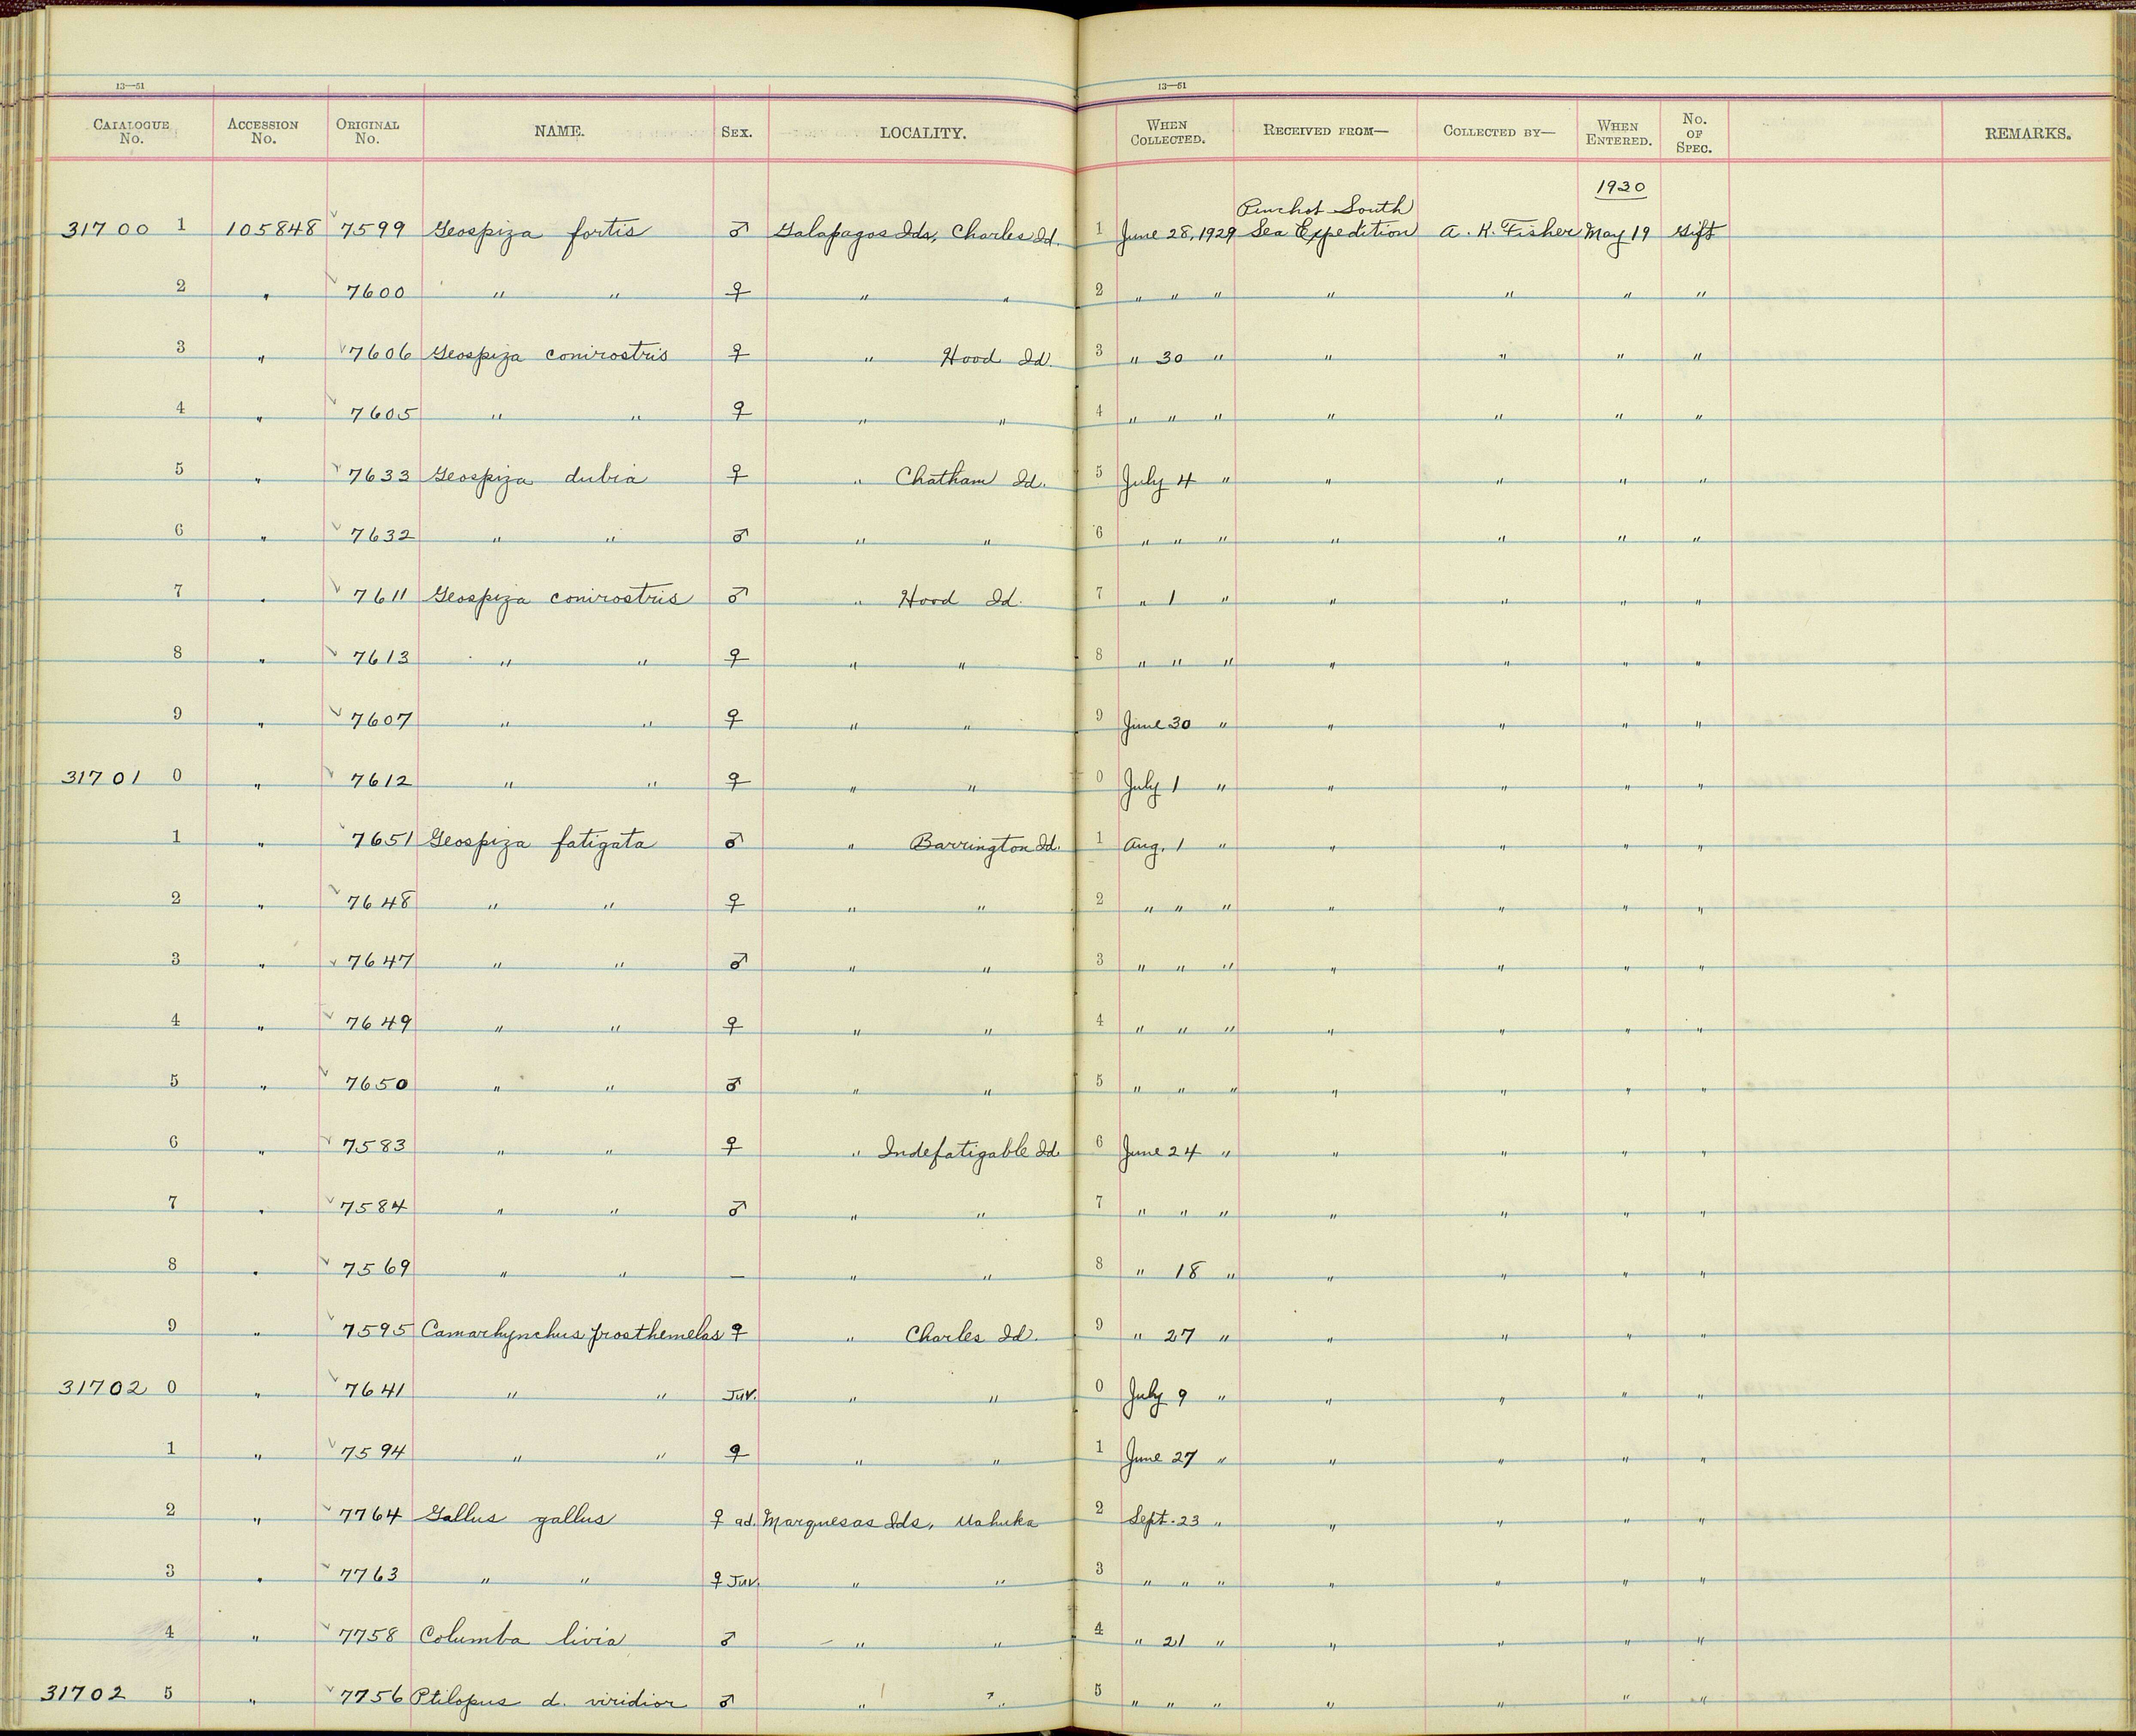 13—51 13—51
CATALOGUE No. ACCESSION No. ORIGINAL No. NAME. SEX. LOCALITY. WHEN COLLECTED. RECEIVED FROM— COLLECTED BY— WHEN ENTERED. No. OF SPEC. REMARKS.
1930
Pinchot South
31700 1 105848 7599 Geospiza fortis ♂ Galapagos Ids, Charles Id. 1 June 28, 1929 Sea Expedition A. K. Fisher May 19 Gift
2 " 7600 " " ♀ " " 2 " " " " " " "
3 " 7606 Geospiza conirostris ♀ " Hood Id. 3 " 30 " " " " "
4 " 7605 " " ♀ " " 4 " " " " " " "
5 " 7633 Geospiza dubia ♀ " Chatham Id. 5 July 4 " " " " "
6 " 7632 " " ♂ " " 6 " " " " " " "
7 " 7611 Geospiza conirostris ♂ " Hood Id. 7 " 1 " " " " "
8 " 7613 " " ♀ " " 8 " " " " " " "
9 " 7607 " " ♀ " " 9 June 30 " " " " "
31701 0 " 7612 " " ♀ " " 0 July 1 " " " " "
1 " 7651 Geospiza fatigata ♂ " Barrington Id. 1 Aug. 1 " " " " "
2 " 7648 " " ♀ " " 2 " " " " " " "
3 " 7647 " " ♂ " " 3 " " " " " " "
4 " 7649 " " ♀ " " 4 " " " " " " "
5 " 7650 " " ♂ " " 5 " " " " " " "
6 " 7583 " " ♀ " Indefatigable Id. 6 June 24 " " " " "
7 " 7584 " " ♂ " " 7 " " " " " " "
8 " 7569 " " — " " 8 " 18 " " " " "
9 " 7595 Camarhynchus prosthemelas ♀ " Charles Id. 9 " 27 " " " " "
31702 0 " 7641 " " Juv. " " 0 July 9 " " " " "
1 " 7594 " " ♀ " " 1 June 27 " " " " "
2 " 7764 Gallus gallus ♀ ad. Marquesas Ids, Uahuka 2 Sept. 23 " " " " "
3 " 7763 " " ♀ Juv. " " 3 " " " " " " "
4 " 7758 Columba livia ♂ " " 4 " 21 " " " " "
31702 5 " 7756 Ptilopus d. viridior ♂ " ? " 5 " " " " " " "